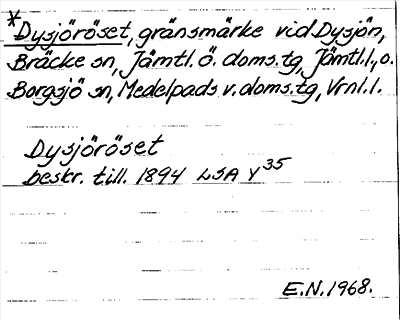 *Dysjöröset, gränsmärke vid Dysjön,
Bräcke sn, Jämtl. ö. doms.tg, Jämtl.l., o.
Borgsjö sn, Medelpads v. doms.tg, Vrnl. l.
Dysjöröset
beskr. till. 1894 LSA Y 35
E.N. 1968.